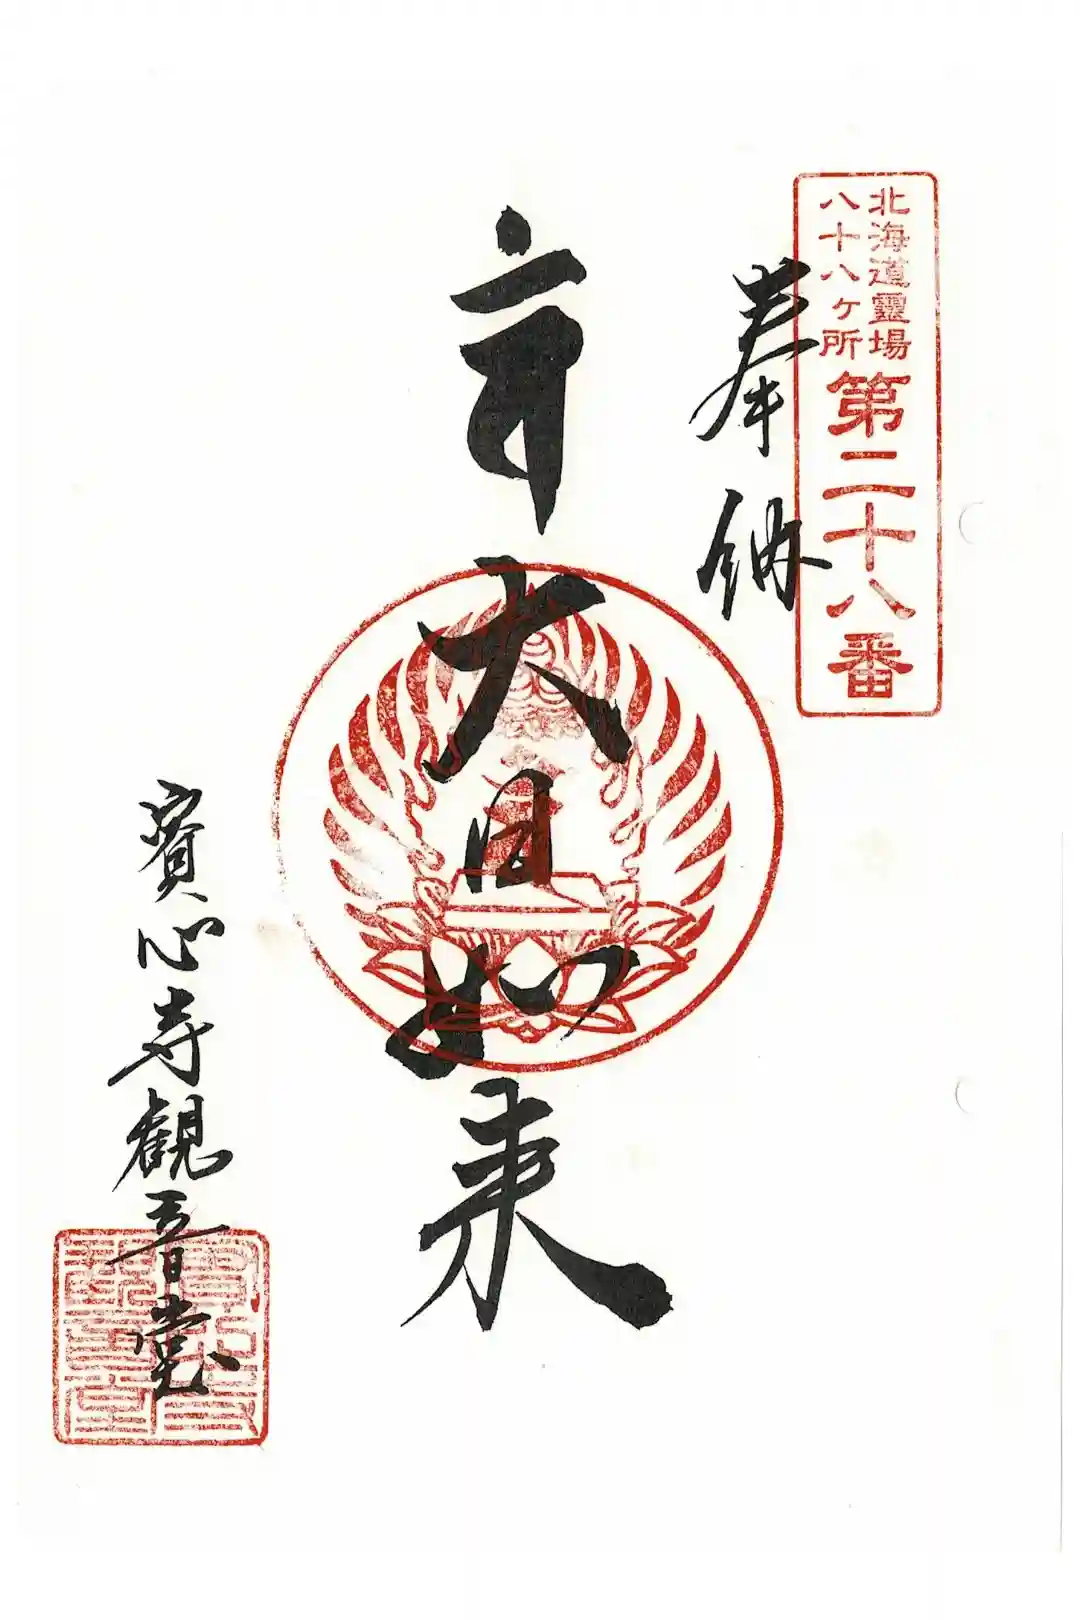 北海道靈場
八十八ヶ所
第二十八番
奉納
大日如来
寳心寺観音堂